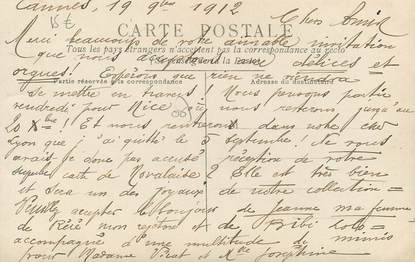 Cannes, 19 9bre 1912
15€
Chers Amis
CARTE POSTALE
Merci beaucoup de votre aimable invitation
Tous les pays étrangers n'acceptent pas la correspondance au recto
que nous acceptons avec délices et
orgues! Espérons que rien ne viendra
Partie réservée à la correspondance
Adresse du destinataire
se mettre en travers! Nous pensons partir
vendredi pour Nice où nous resterons jusqu'au
20 Xbre! Et nous rentrerons dans notre cher
Lyon que j'ai quitté le 5 Septembre! Ne vous
avais-je donc pas accusé réception de votre
superbe carte de Novalaise? Elle est très bien
et sera un des joyaux de votre collection =
Veuillez accepter le bonjour de Jeanne ma femme
de Réré mon rejeton et de Bibi
accompagné d'une multitude de mimis
pour Madame et Joséphine